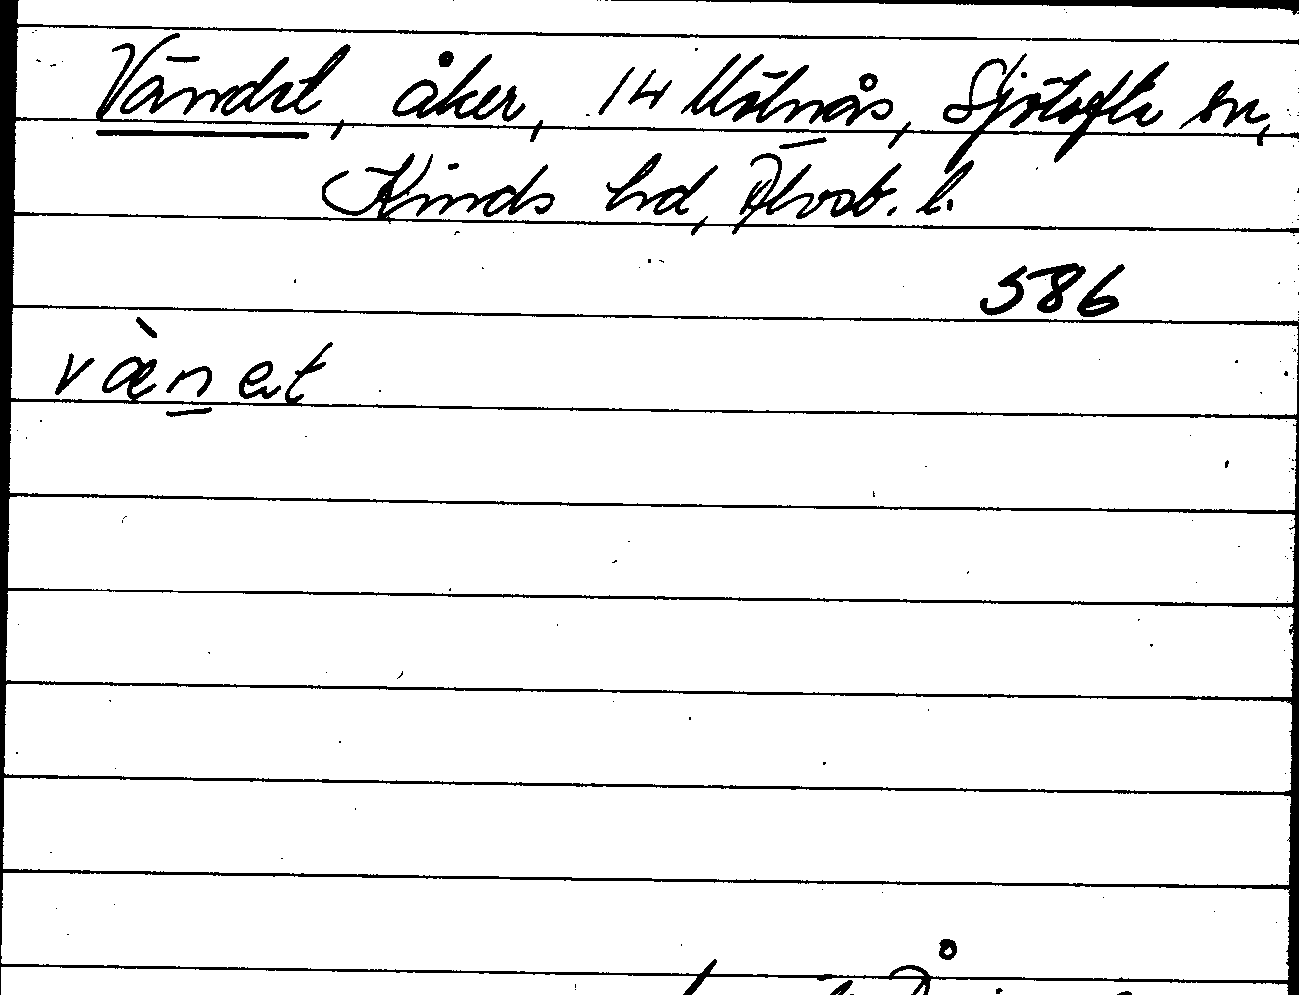 Vändet, åker, 14 Mölnås, Sjötofta sn,
Kinds hd, Älvsb. l.
586
væ̀n̲et